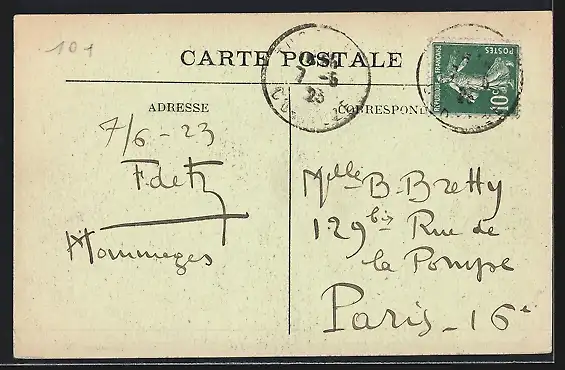 101
CARTE POSTALE
ADRESSE
7/6-23
Hommages
CORRESPOND
7-6
23
REPUBLIQUE FRANÇAISE
POSTES
10c
Mlle B. Bretty
129bis Rue de
la Pompe
Paris-16e